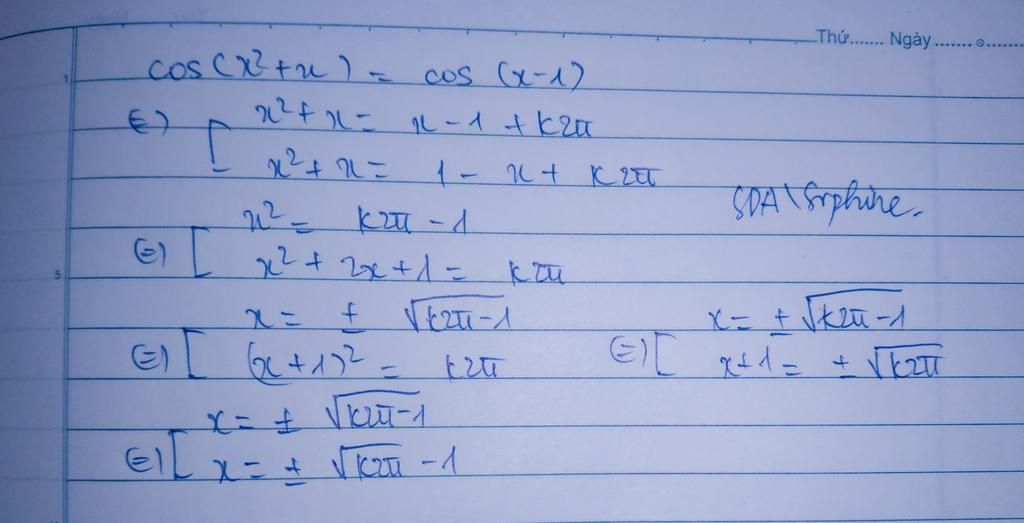 Thứ....... Ngày.......
cos(x²+x) = cos (x-1)
⇔ [ x²+x = x-1+k2π
x²+x = 1-x+k2π
x² = k2π-1
⇔ [ x²+2x+1 = k2π
x = ± √(k2π-1)
⇔ [ (x+1)² = k2π
x = ± √(k2π-1)
⇔ [ x+1 = ± √(k2π)
x = ± √(k2π-1)
⇔ [ x = ± √(k2π) -1